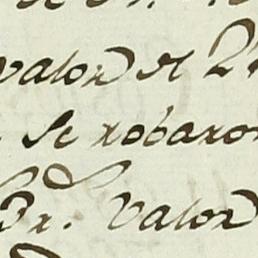 valor de 2
se robaron
Br. valor